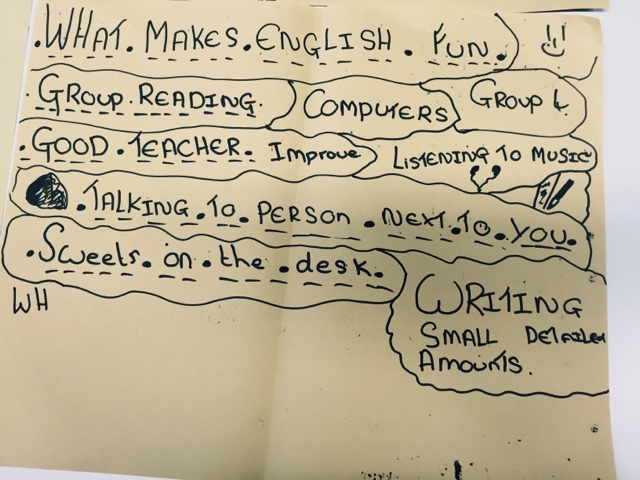 .WHAT. MAKES. ENGLISH. FUN.
.GROUP. READING.
COMPUTERS
GROUP 4
.GOOD. TEACHER. Improve
LISTENING TO MUSIC
.TALKING. TO. PERSON. NEXT. TO. YOU.
.Sweets. on. the. desk.
WH
WRITING
SMALL DETAILED
AMOUNTS.